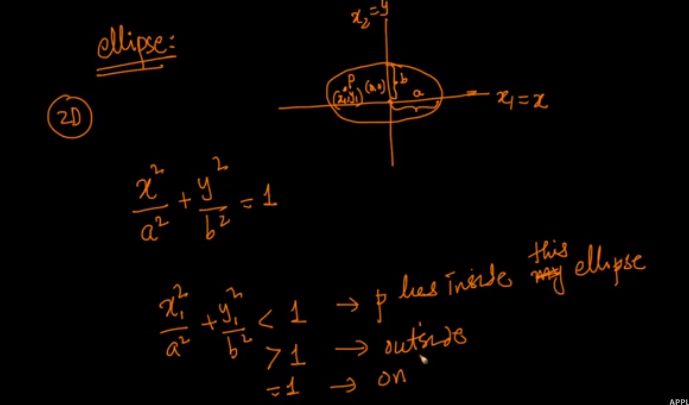 ellipse:
x₂=y
P
b
(x₁,y₁)
a
x₁=x
2D
x²/a² + y²/b² = 1
x₁²/a² + y₁²/b² < 1 → p lies inside this ellipse
> 1 → outside
= 1 → on
APPL